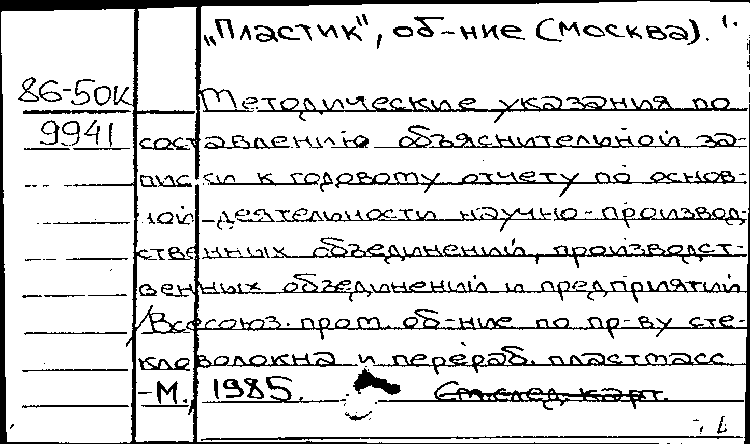 "Пластик", об-ние (Москва).
86-50к
9941
Методические указания по
составлению объяснительной за-
писки к годовому отчету по основ-
ной деятельности научно-производ-
ственных объединений, производст-
венных объединений и предприятий
/Всесоюз. пром. об-ние по пр-ву сте-
кловолокна и перераб. пластмасс
-М., 1985.
См. след. карт.